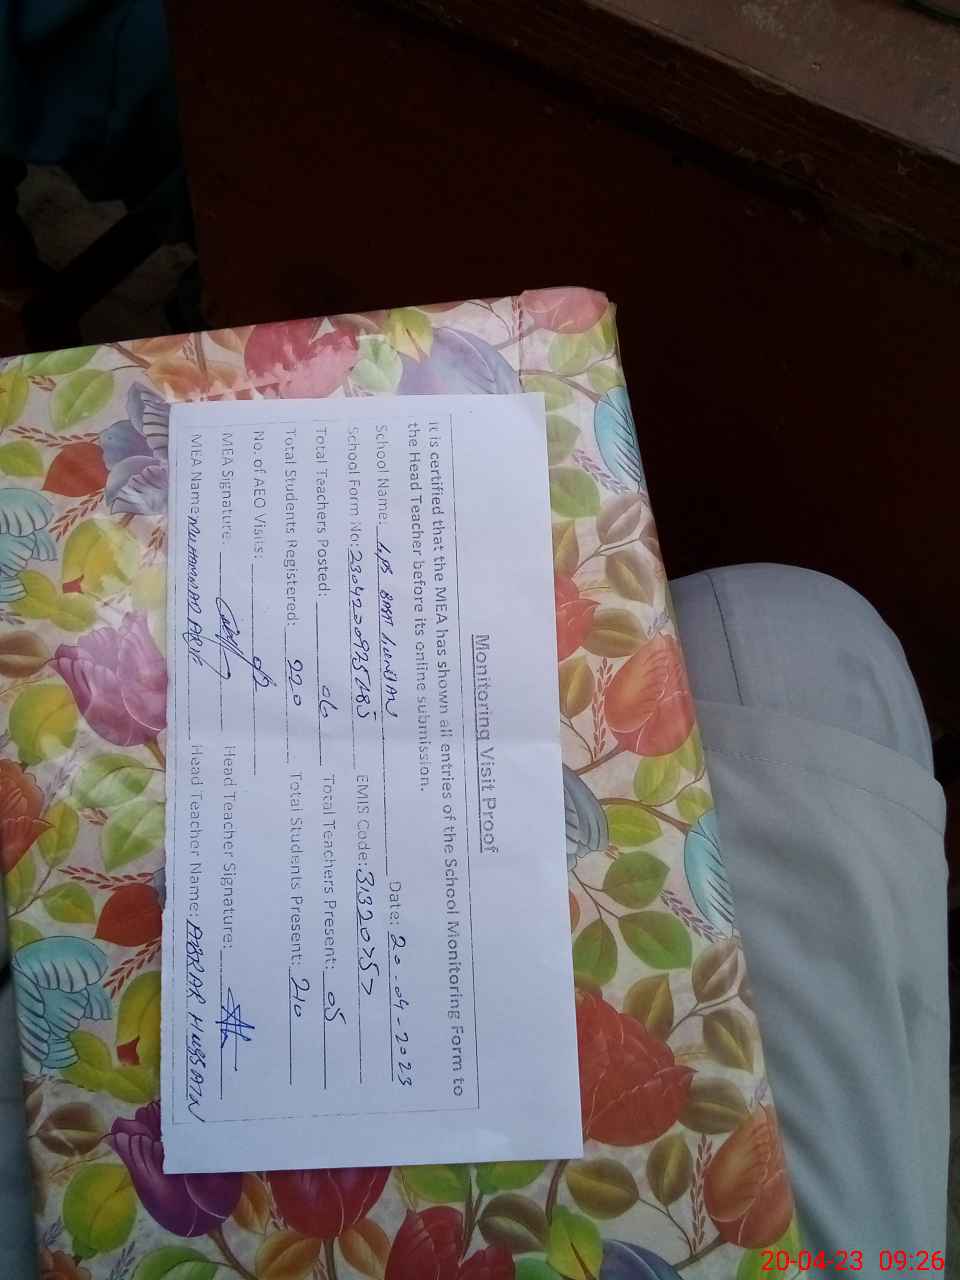 Monitoring Visit Proof
It is certified that the MEA has shown all entries of the School Monitoring Form to
the Head Teacher before its online submission.
School Name: Date: 20-04-2023
School Form No: EMIS Code:
Total Teachers Posted: 06 Total Teachers Present: 05
Total Students Registered: 220 Total Students Present: 210
No. of AEO Visits:
MEA Signature: Head Teacher Signature:
MEA Name: MUHAMMAD ARIF Head Teacher Name: ABRAR HUSSAIN
20-04-23 09:26